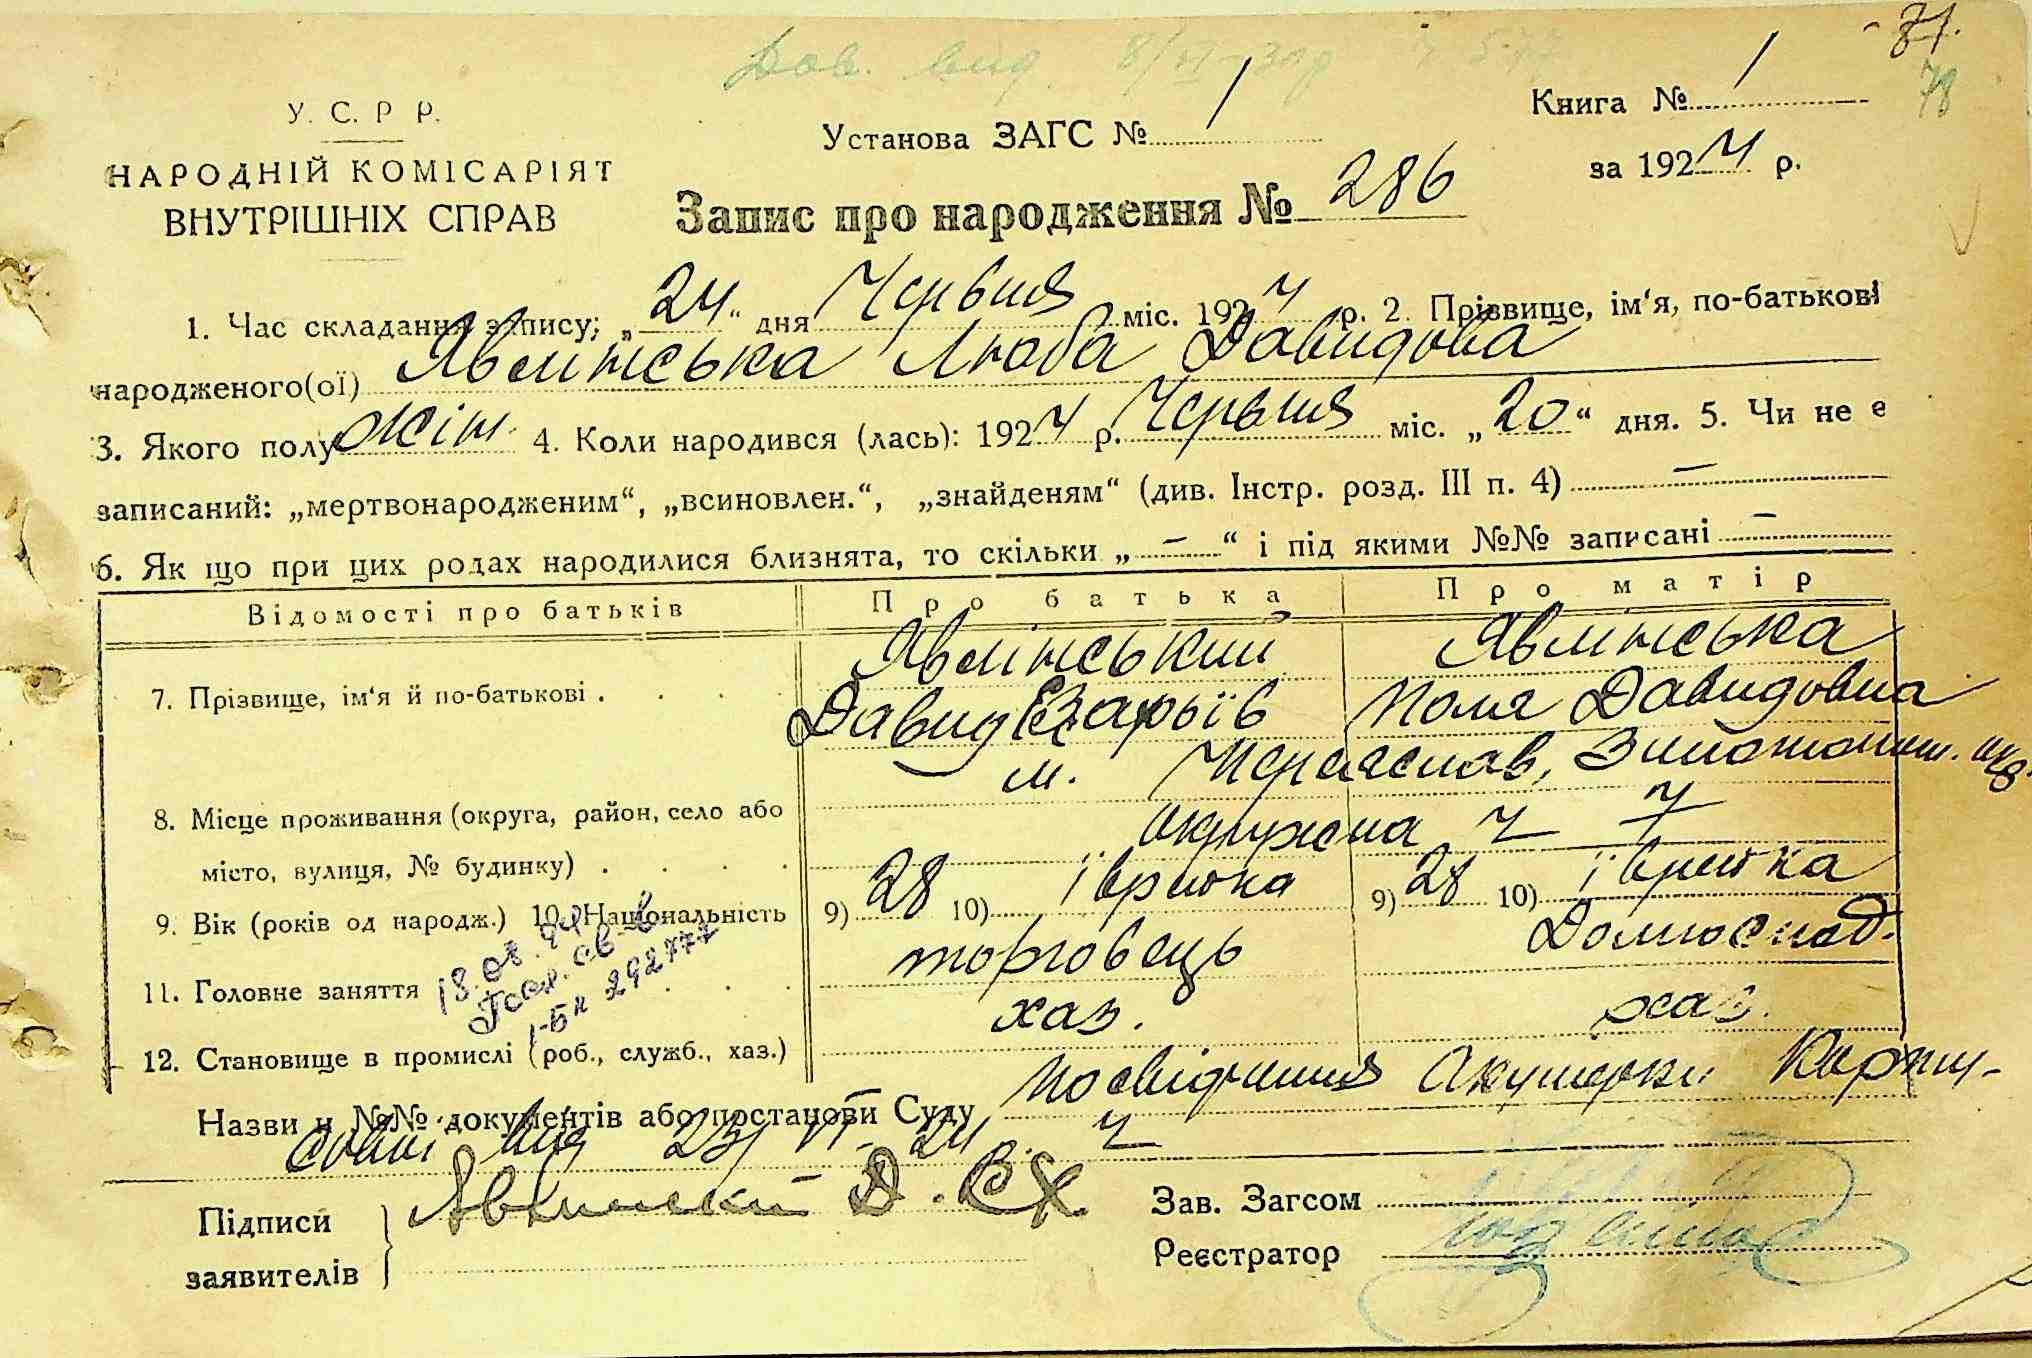 Дов. вид. 8/VI
71.
78
У. С. Р. Р.
НАРОДНІЙ КОМІСАРІЯТ
ВНУТРІШНІХ СПРАВ
Установа ЗАГС № 1
Книга № 1
за 1924 р.
Запис про народження № 286
1. Час складання запису; „24“ дня Червня міс. 1924 р. 2. Прізвище, ім‘я, по-батькові
народженого(ої) Явлінська Люба Давидова
3. Якого полу жін. 4. Коли народився (лась): 1924 р. Червня міс. „20“ дня. 5. Чи не є
записаний: „мертвонародженим“, „всиновлен.“, „знайденям“ (див. Інстр. розд. III п. 4) —
6. Як що при цих родах народилися близнята, то скільки „ — “ і під якими №№ записані —
Відомості про батьків Про батька Про матір
7. Прізвище, ім‘я й по-батькові . Явлінський Явлінська
Давид Поля Давидовна
8. Місце проживання (округа, район, село або м. Переяслав,
місто, вулиця, № будинку) . окружна ч 7
9. Вік (років од народж.) 10. Національність 9) 28 10) івриика 9) 28 10) іврейка
11. Головне заняття торговець Домгоспод.
12. Становище в промислі (роб., служб., хаз.) хаз. хаз.
292777
Назви и №№ документів або постанови Суду Посвідчення Акушерки
від 23/VI 24
Підписи
заявителів
Явлинский Д.
Зав. Загсом
Реєстратор